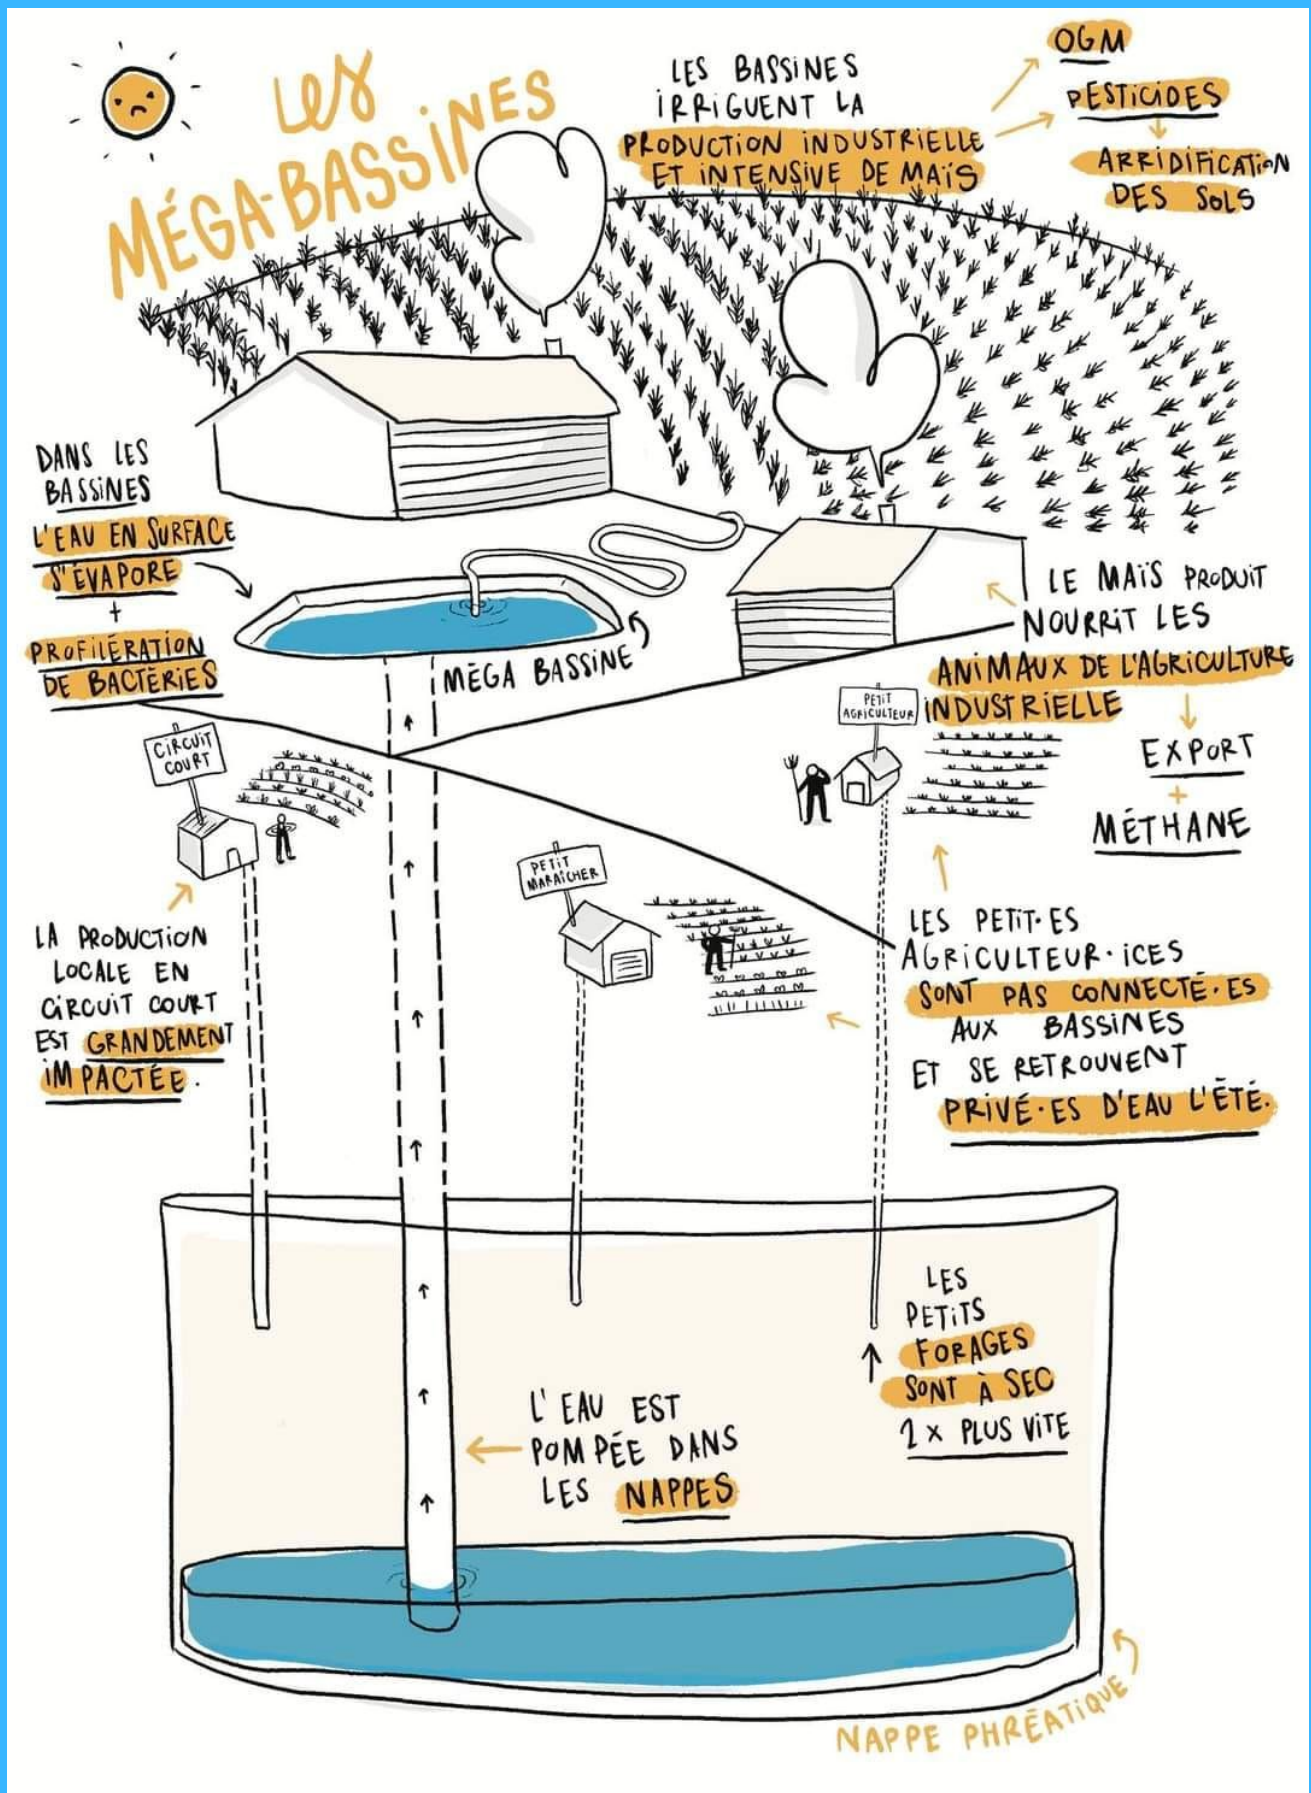 LES
MÉGA-BASSINES
LES BASSINES
IRRIGUENT LA
PRODUCTION INDUSTRIELLE
ET INTENSIVE DE MAÏS
OGM
PESTICIDES
ARRIDIFICATION
DES SOLS
DANS LES
BASSINES
L'EAU EN SURFACE
S'ÉVAPORE
+
PROFILÉRATION
DE BACTÉRIES
MÉGA BASSINE
LE MAÏS PRODUIT
NOURRIT LES
ANIMAUX DE L'AGRICULTURE
INDUSTRIELLE
EXPORT
+
MÉTHANE
CIRCUIT
COURT
PETIT
AGRICULTEUR
PETIT
MARAÎCHER
LA PRODUCTION
LOCALE EN
CIRCUIT COURT
EST GRANDEMENT
IMPACTÉE.
LES PETIT·ES
AGRICULTEUR·ICES
SONT PAS CONNECTÉ·ES
AUX BASSINES
ET SE RETROUVENT
PRIVÉ·ES D'EAU L'ÉTÉ.
LES
PETITS
FORAGES
SONT À SEC
2 X PLUS VITE
L'EAU EST
POMPÉE DANS
LES NAPPES
NAPPE PHRÉATIQUE